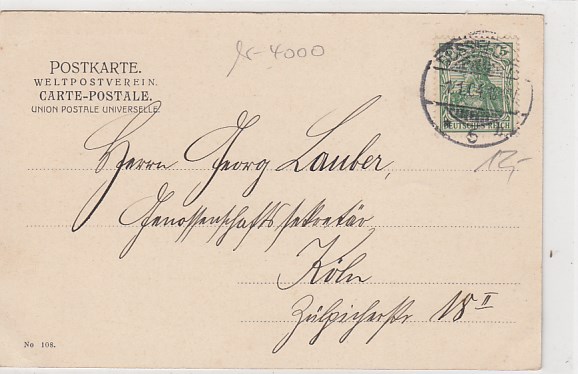 POSTKARTE.
WELTPOSTVEREIN.
CARTE-POSTALE.
UNION POSTALE UNIVERSELLE.
4000
DEUTSCHES REICH
12,-
Herrn Georg Lauber,
Genossenschaftssekretär
Köln
Zülpicherstr 18 II
No 108.